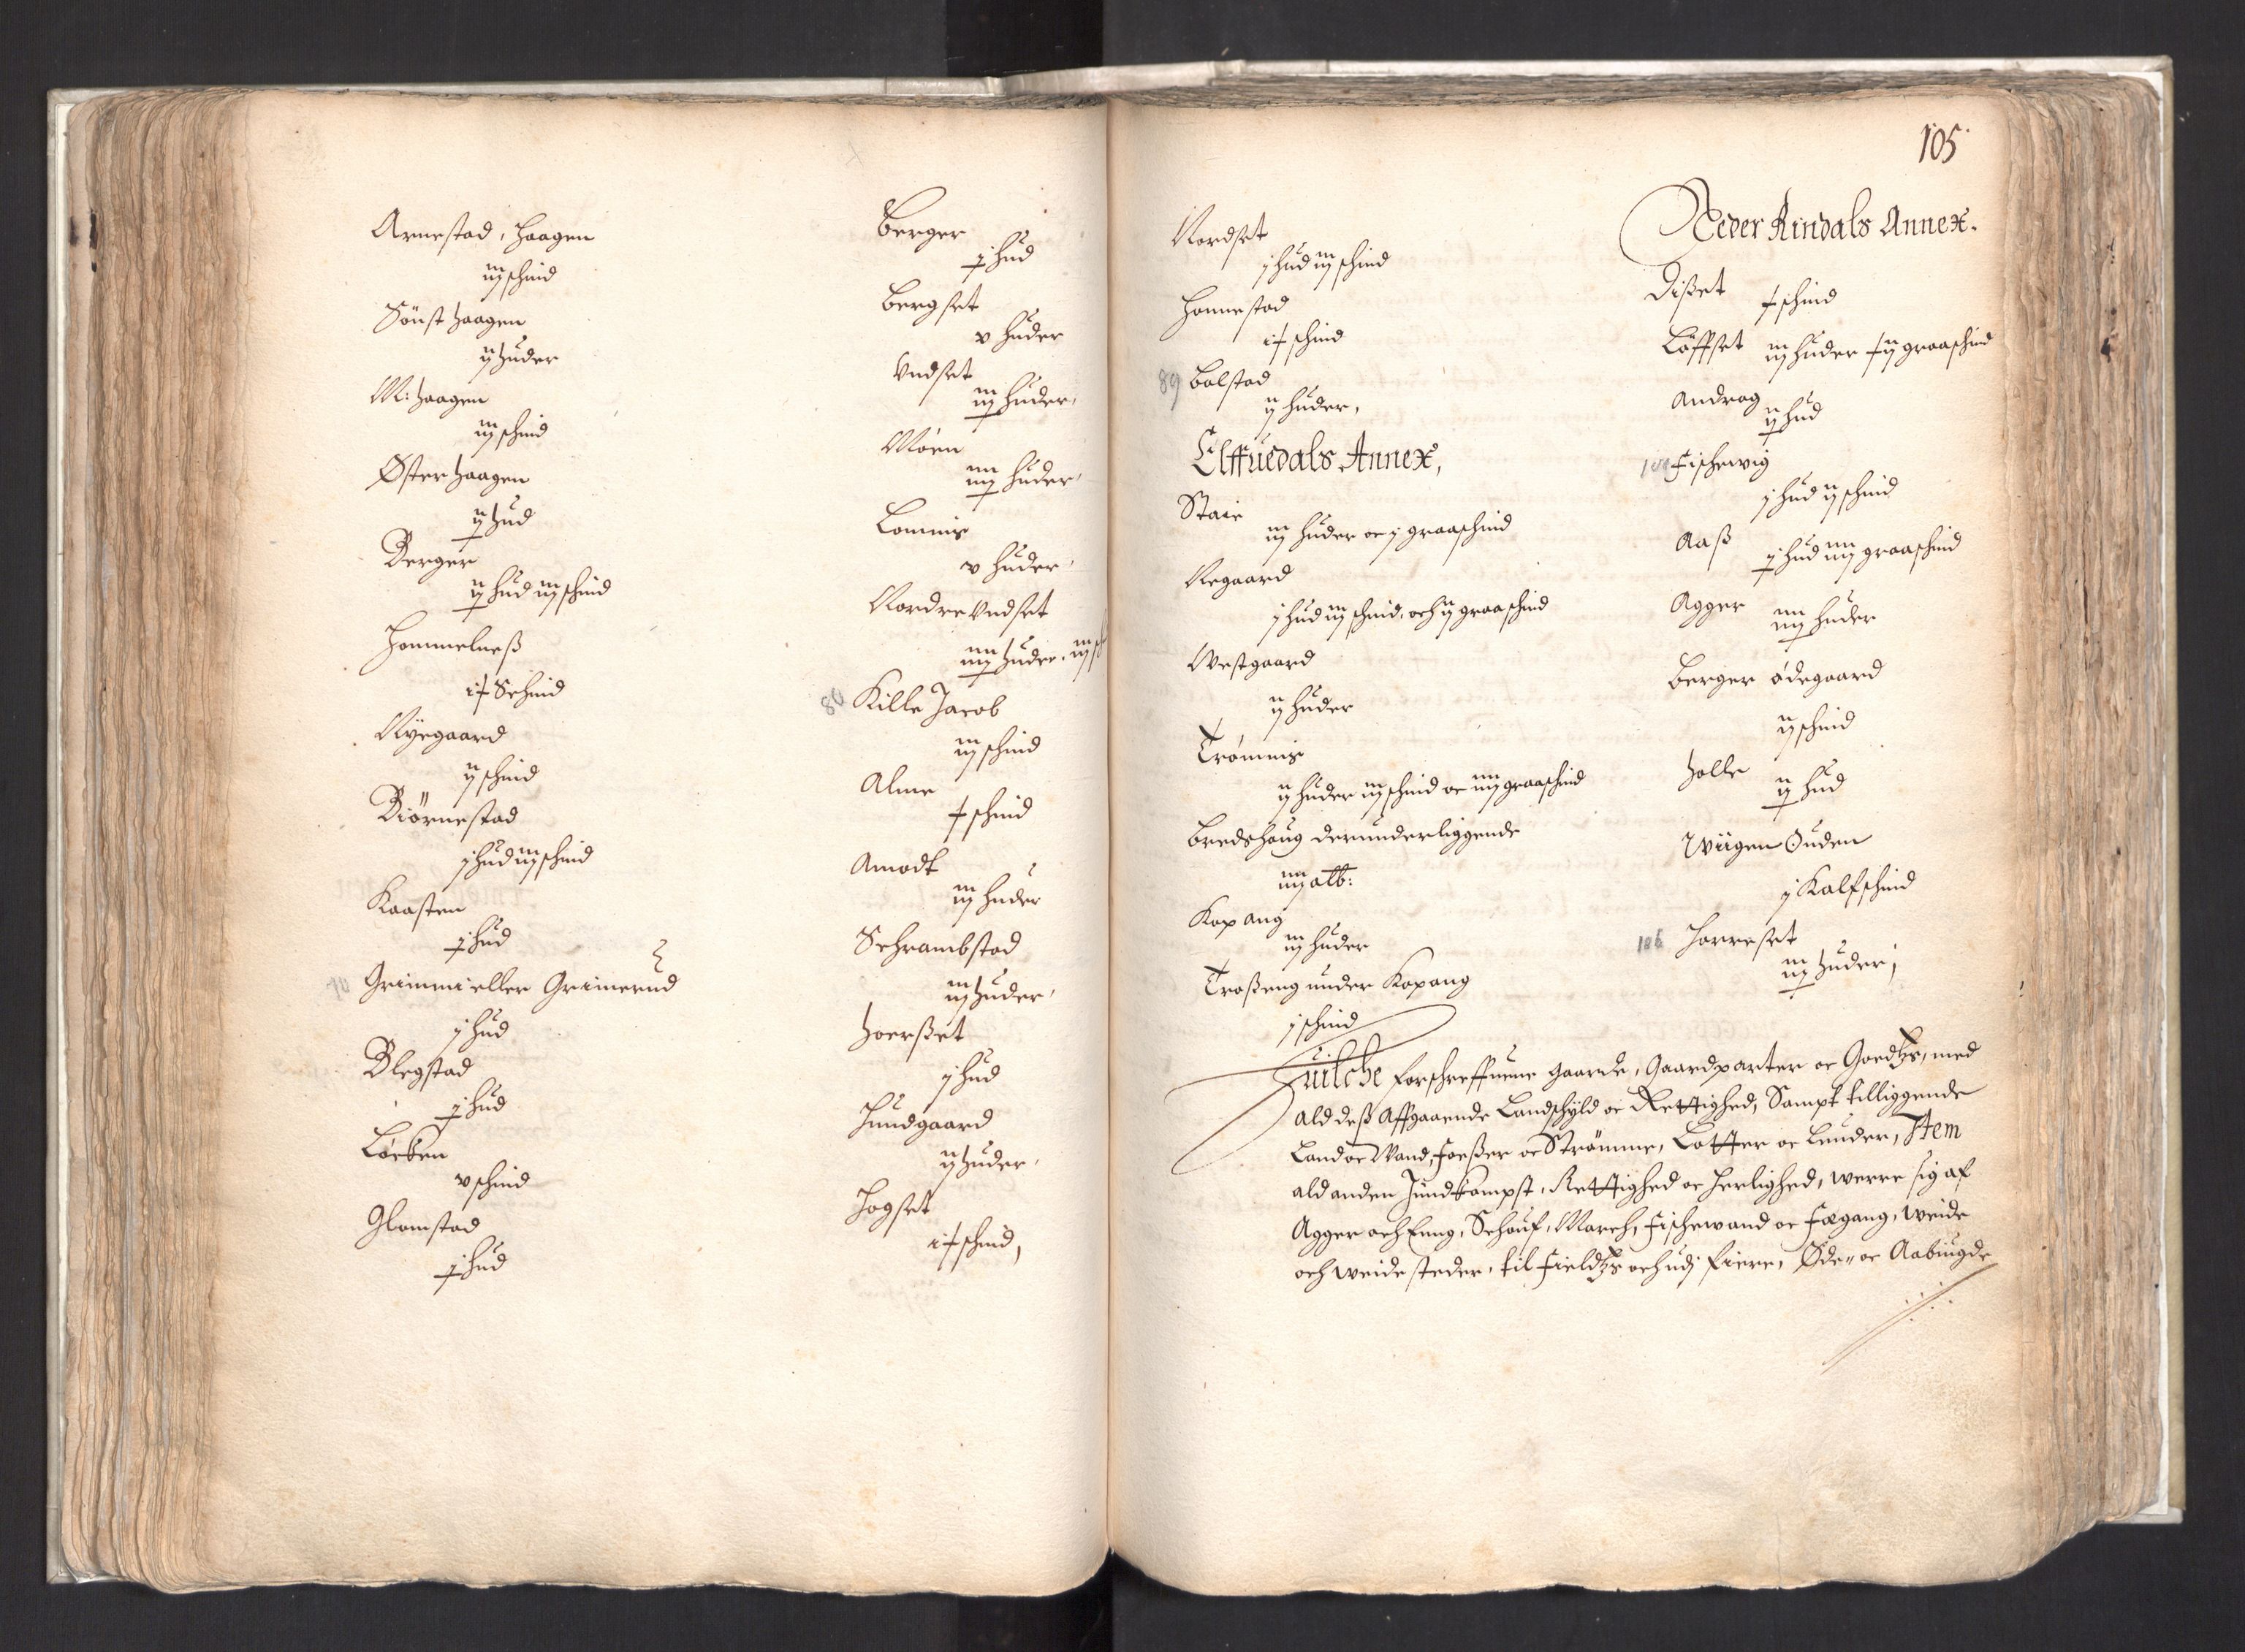 Arnestad, Haagen
iij schind
Sönst Haagen
ij Huder
M: Haagen
iij schind
Øster Haagen
ij Hud
Berger
ij Hud iij schind
Hommelneß
ix Schind
Nÿegaard
ij schind
Biörnestad
j Hud iij schind
Kaasten
j Hud
Grimmi eller Grimerud
j Hud
Blegstad
j Hud
Löcken
v schind
Glomstad
j Hud
Berger
j Hud
Bergset
v Huder
Undset
iij Huder,
Möen
iiij Huder,
Lomnis
v Huder,
Nordre Undset
iiij Huder, iij
80 Kille Jacob
iij schind
Alme
x schind
Amodt
iij Huder
Schrambstad
iij Huder,
Hoerßet
j Hud
Hundgaard
ij Huder,
Hogset
ix schind,
105
Nordset
j Hud iij schind
Honnestad
ix schind
89 Bolstad
ij Huder,
Elffuedals Annex,
Staie
iij Huder oc j graaschind
Negaard
j Hud iij schind, och ij graaschind
Westgaard
ij Huder
Trömnis
ij Huder iij schind oc iiij graaschind
Bredshaug derunderliggende
iiij alb:
Kopang
iij Huder
Troßeng under Kopang
j schind
Neder Rindals Annex.
Dißet x schind
Löffset iij Huder xij graaschind
Androg
ij Hud
Fischewig
j Hud ij schind
Aaß j Hud iiij graaschind
Agger iiij Huder
Berger ödegaard
ij schind
Holle ij Hud
Wiigen Öuden
j Kalfschind
106 Harreset
iij Huder,
Huilche forschreffuene gaarde, Gaardparter oc Goedtzs, med
ald deß Affgaaende Landschÿld oc Rettighed, Sampt tilliggende
Land oc Wand, Foeßer oc Strömme, Lotter oc Lunder, Item
ald anden Jndkompst, Rettighed oc Herlighed, werre sig af
Agger och Enng, Schouf, March, Fischewand oc Fægang, Weide
och weidesteder, til Fieldtzs och udj Fiere, Øde- oc Aabÿugde